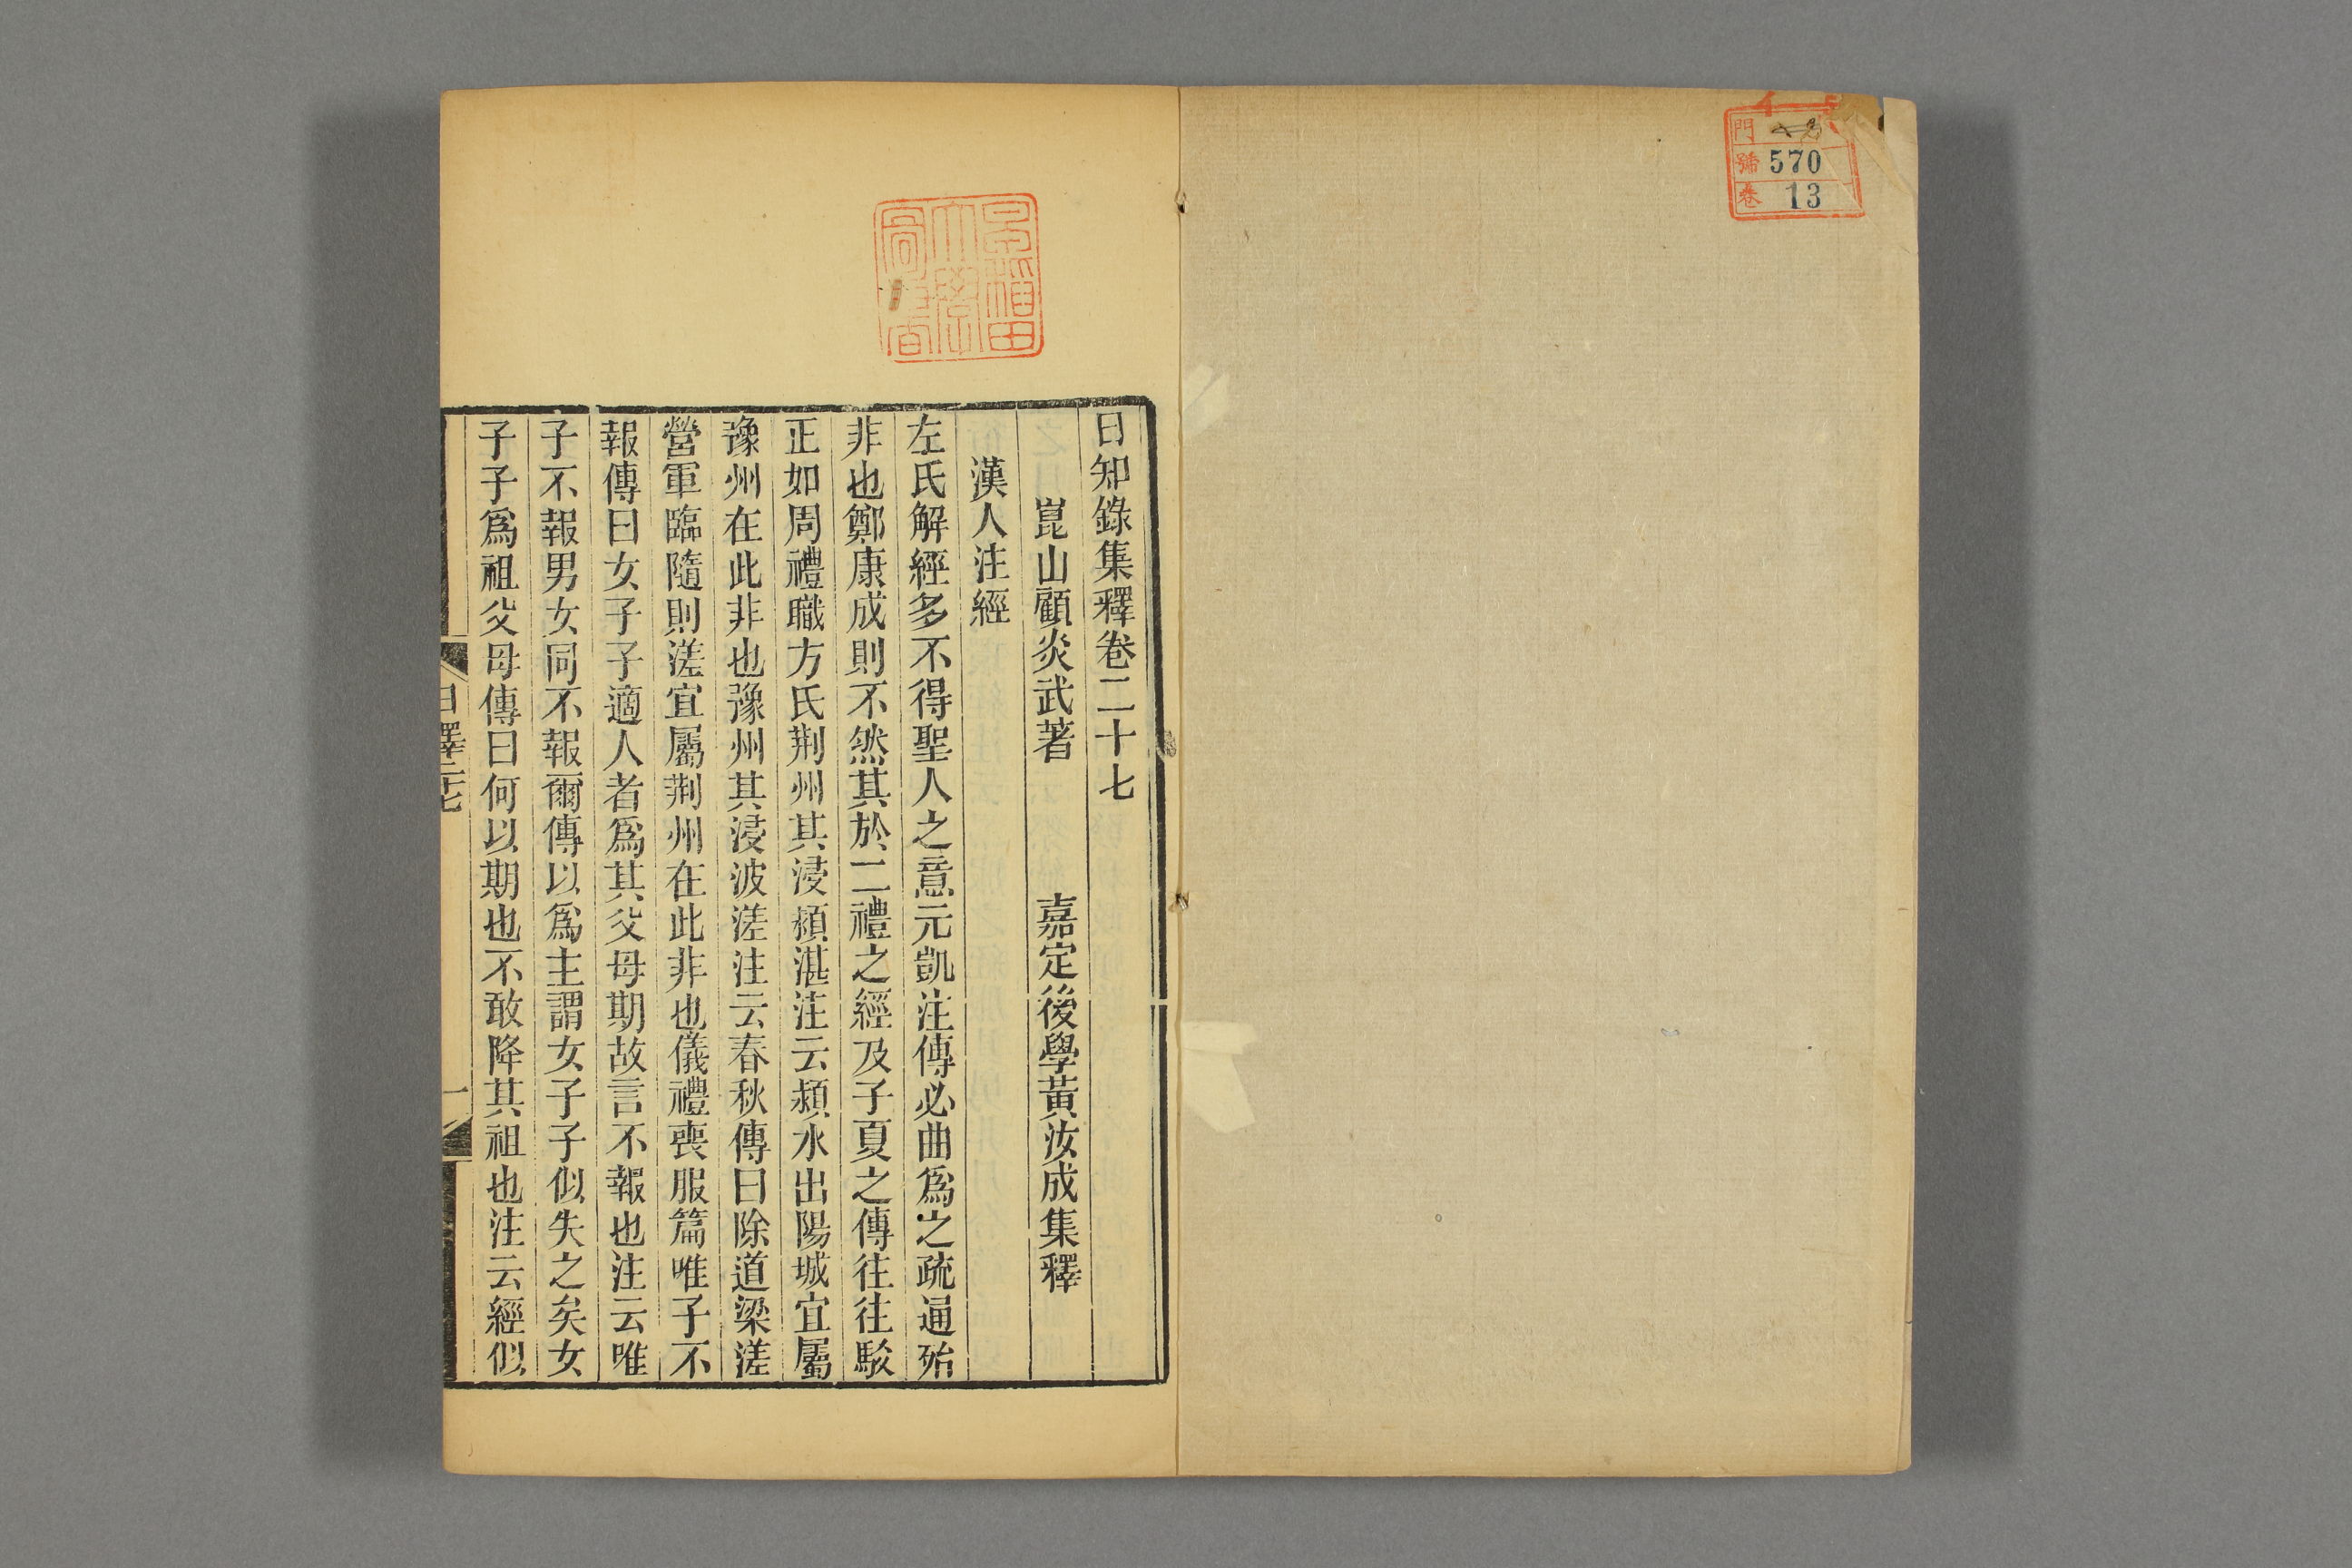 門
號 570
卷 13
早稲田大學圖書
日知錄集釋卷二十七
崑山顧炎武著 嘉定後學黃汝成集釋
漢人注經
左氏解經多不得聖人之意元凱注傳必曲爲之疏通殆
非也鄭康成則不然其於二禮之經及子夏之傳往往駁
正如周禮職方氏荆州其浸潁湛注云潁水出陽城宜屬
豫州在此非也豫州其浸波溠注云春秋傳曰除道梁溠
營軍臨隨則溠宜屬荆州在此非也儀禮喪服篇唯子不
報傳曰女子子適人者爲其父母期故言不報也注云唯
子不報男女同不報爾傳以爲主謂女子子似失之矣女
子子爲祖父母傳曰何以期也不敢降其祖也注云經似
日釋二十七
一